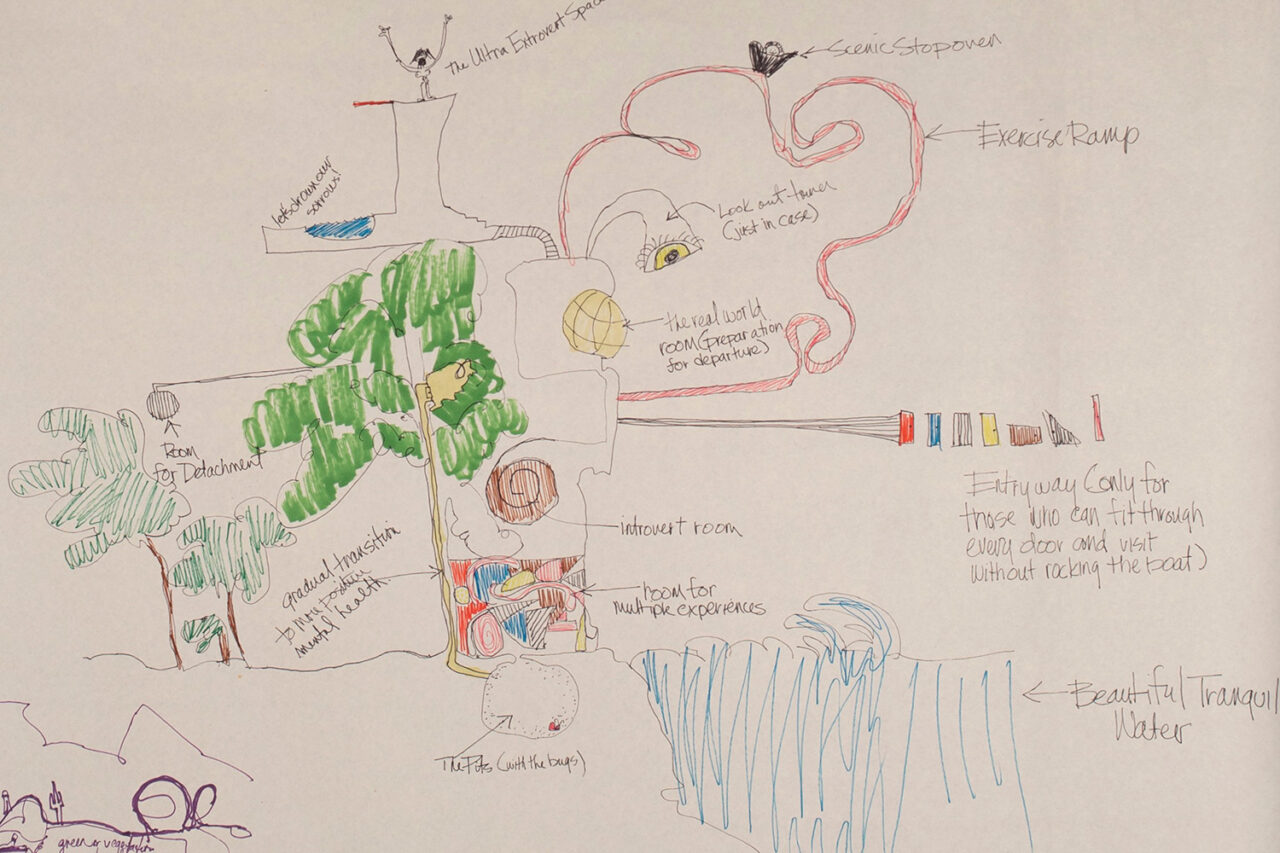 The Ultra Extrovert Space
Scenic Stopover
Exercise Ramp
let's drown our
sorrows!
Look out tower
(just in case)
the real world
room (preparation
for departure)
Room
for Detachment
Entry way (only for
those who can fit through
every door and visit
without rocking the boat)
introvert room
gradual transition
to more positive
mental health
Room for
multiple experiences
Beautiful Tranquil
Water
The Pits (with the bugs)
green of vegetation